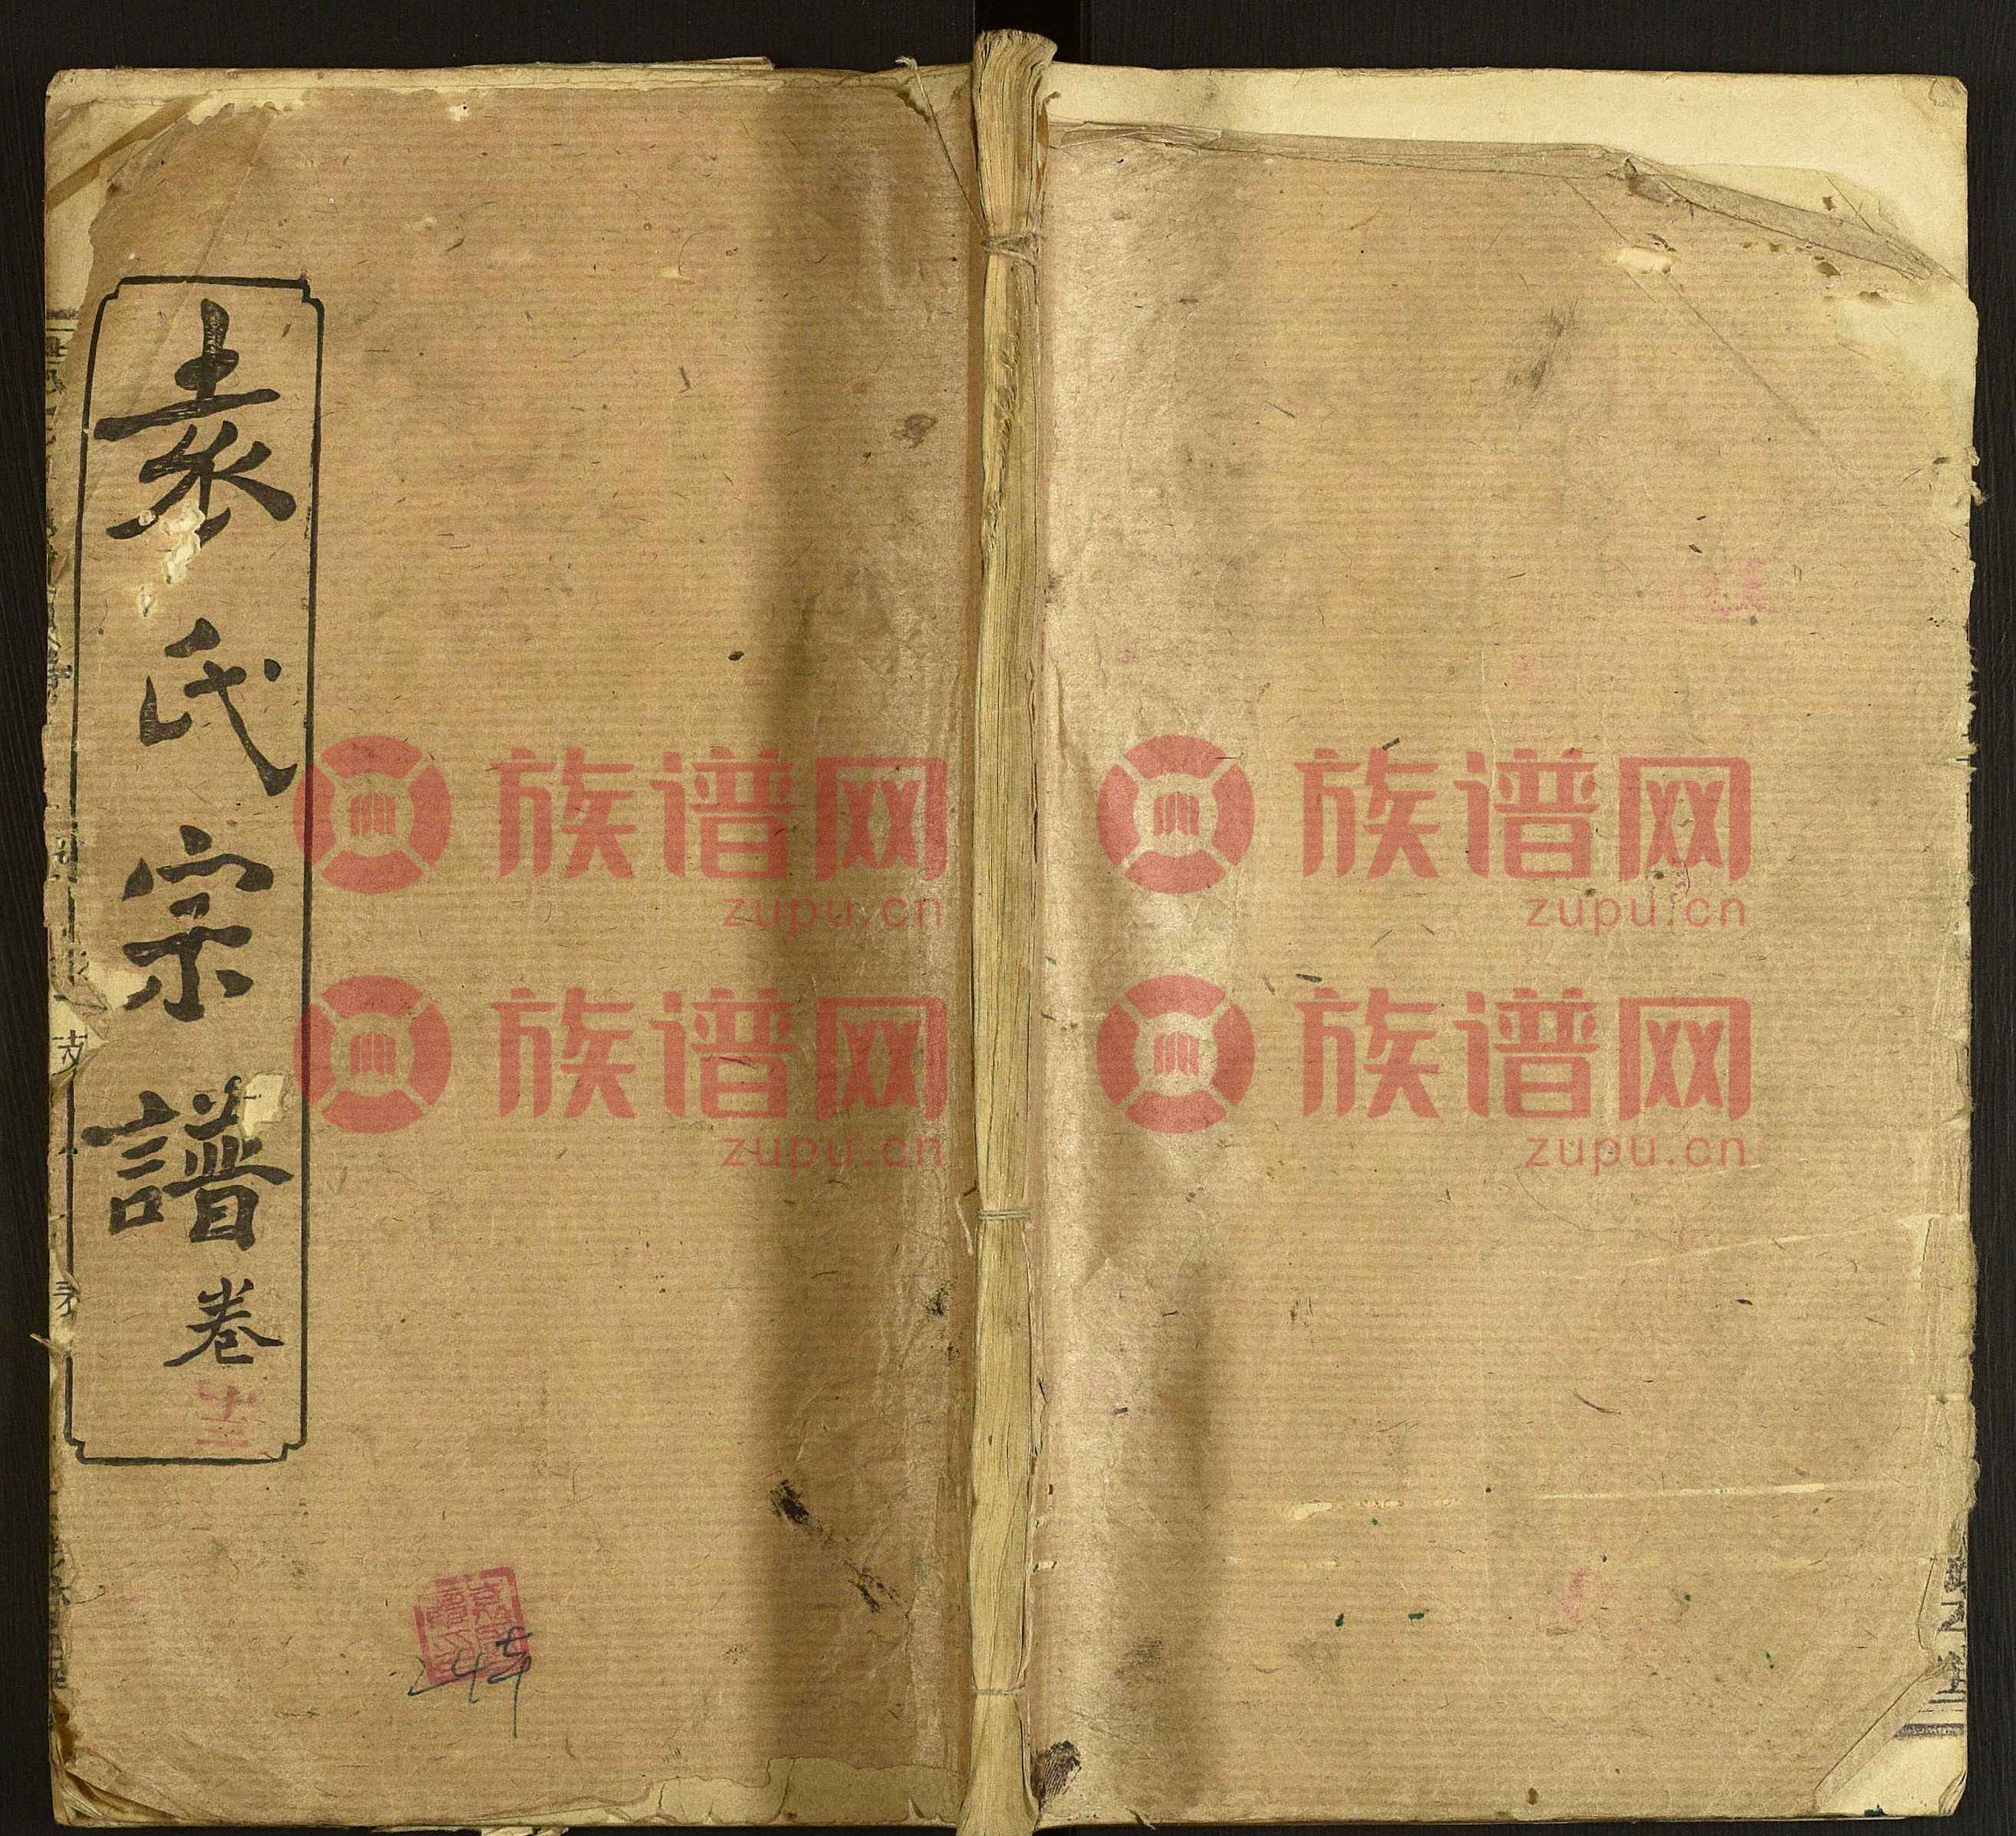 袁氏宗譜卷十三
族谱网
zupu.cn
族谱网
zupu.cn
族谱网
zupu.cn
族谱网
zupu.cn
支